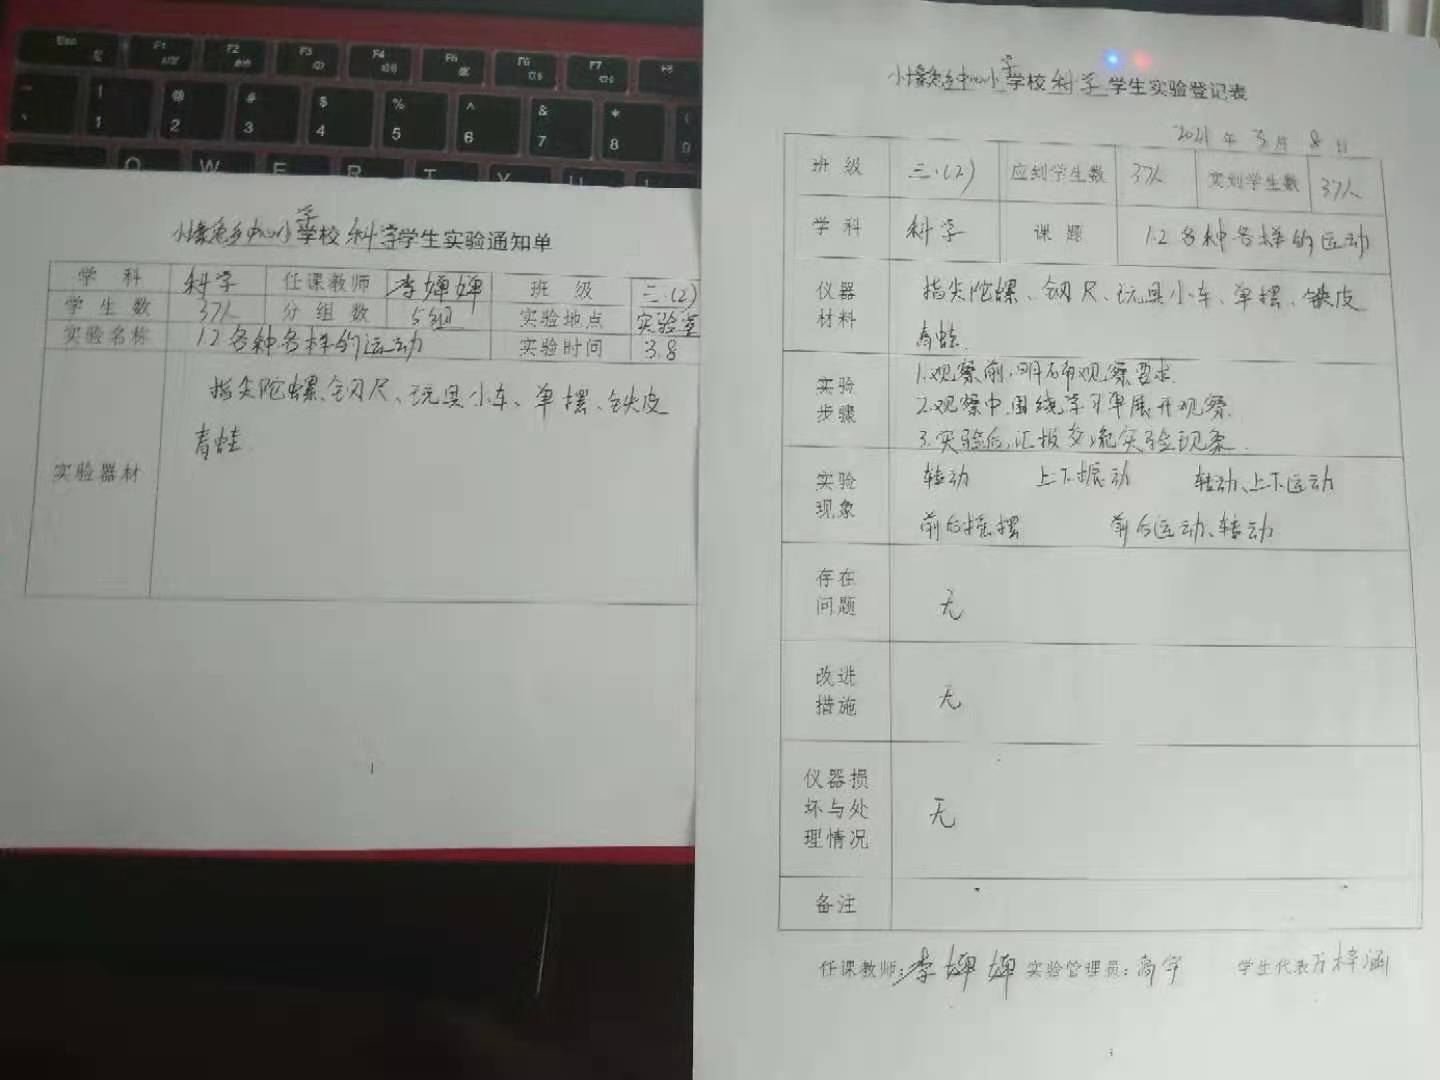 Esc F1 F2 F3 F4 F5 F6 F7 F8
! 1 @ 2 # 3 $ 4 % 5 ^ 6 & 7 * 8 ( 9
Q W E R T Y U
中心小学校 科学 学生实验通知单
学 科 科学 任课教师 李婵婵 班 级 三.(2)
学 生 数 37人 分 组 数 5组 实验地点 实验室
实验名称 1.2各种各样的运动 实验时间 3.8
实验器材 指尖陀螺、钢尺、玩具小车、单摆、铁皮
青蛙.
1
中心小学校 科学 学生实验登记表
2021 年 3 月 8 日
班 级 三.(2) 应到学生数 37人 实到学生数 37人
学 科 科学 课 题 1.2各种各样的运动
仪器 指尖陀螺、钢尺、玩具小车、单摆、铁皮
材料 青蛙.
实验 1.观察前,明确观察要求.
步骤 2.观察中,围绕学习单展开观察.
3.实验后,汇报交流实验现象.
实验 转动 上下振动 转动、上下运动
现象 前后摇摆 前后运动、转动
存在
问题 无
改进
措施 无
仪器损
坏与处 无
理情况
备注
任课教师:李婵婵 实验管理员:高宇 学生代表 万梓涵